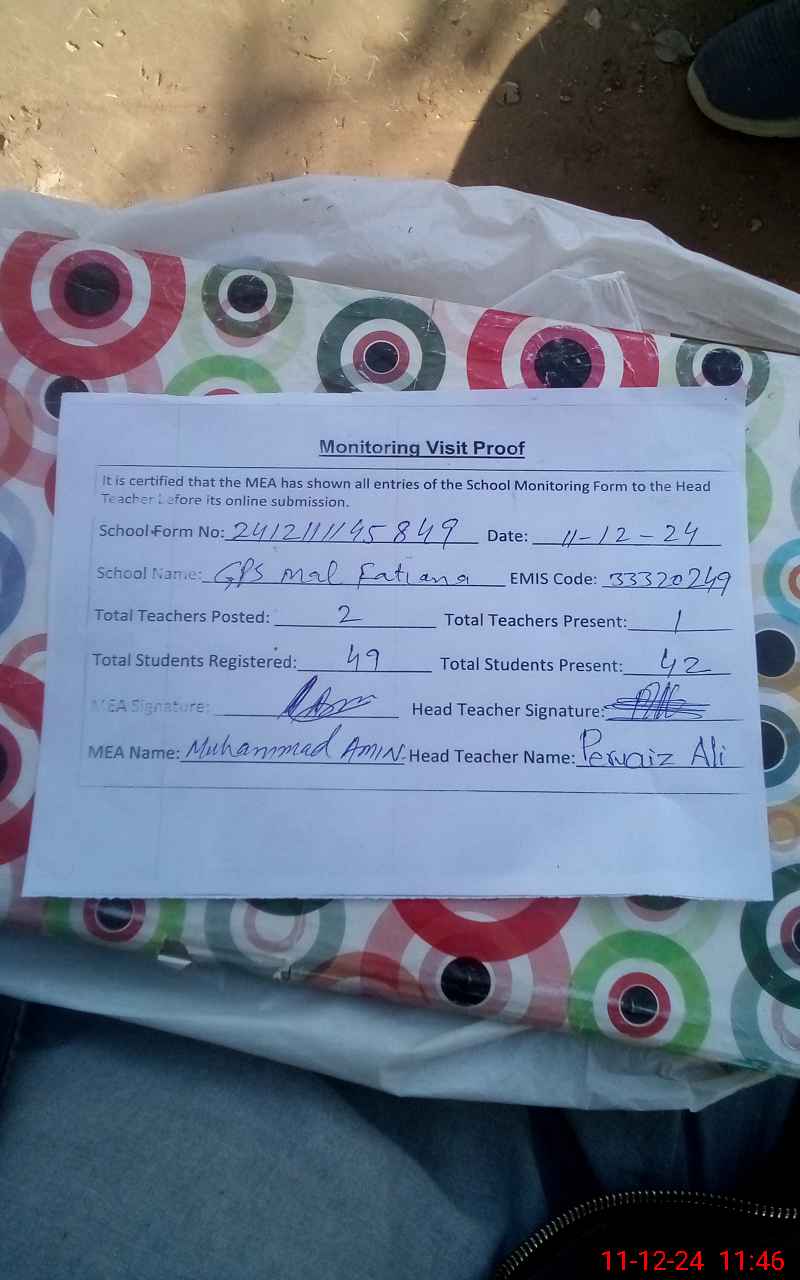 Monitoring Visit Proof
It is certified that the MEA has shown all entries of the School Monitoring Form to the Head
Teacher before its online submission.
School Form No: 241211145849 Date: 11-12-24
School Name: GPS Mal Fatiana EMIS Code: 33320249
Total Teachers Posted: 2 Total Teachers Present: 1
Total Students Registered: 49 Total Students Present: 42
MEA Signature: Head Teacher Signature:
MEA Name: Muhammad AMIN. Head Teacher Name: Pervaiz Ali
11-12-24 11:46